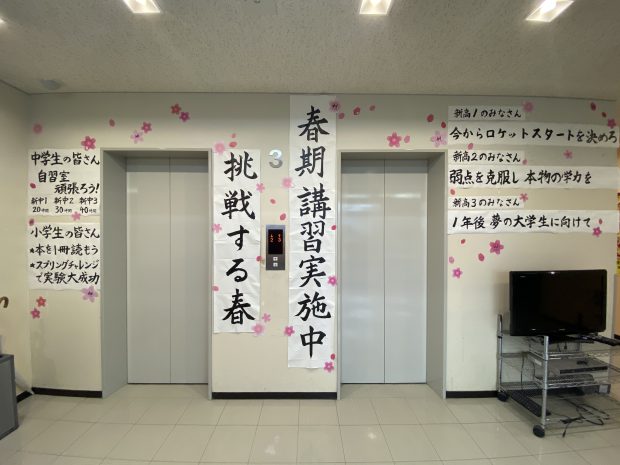 中学生の皆さん
自習室
頑張ろう!
新中1 新中2 新中3
20時間 30時間 40時間
小学生の皆さん
★本を1冊読もう
★スプリングチャレンジ
で実験大成功
挑戦する春
3
春期講習実施中
新高1のみなさん
今からロケットスタートを決めろ
新高2のみなさん
弱点を克服し本物の学力を
新高3のみなさん
1年後夢の大学生に向けて